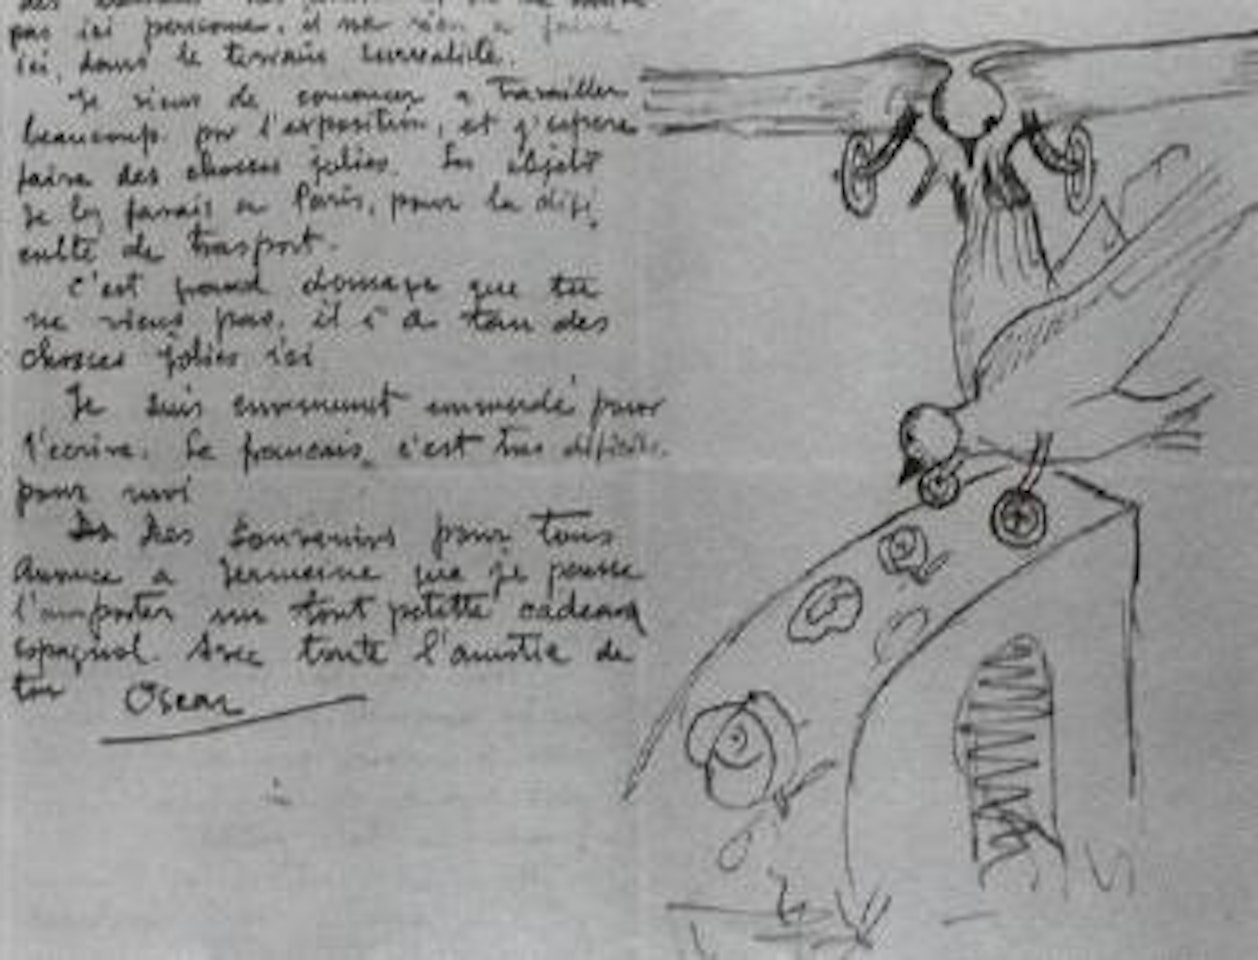 pas ici persone, il ne rien a faire
ici, dans le terrain surrealiste.
Je viens de comencer a travailler
beaucoup por l'exposition, et j'espere
faire des chosses jolies. Les objets
je les farais a Paris, pour la difi
culté de trasport.
C'est grand domage que tu
ne viens pas. il i a tan des
chosses jolies ici
Je suis enmerdé pour
l'ecrire. Le francais, c'est tres dificile.
pour moi
Des souvenirs pour tous
Anonce a Jermaine que je pense
l'amporter un tout petitte cadeau
espagnol. Avec toute l'amitie de
ton Oscar